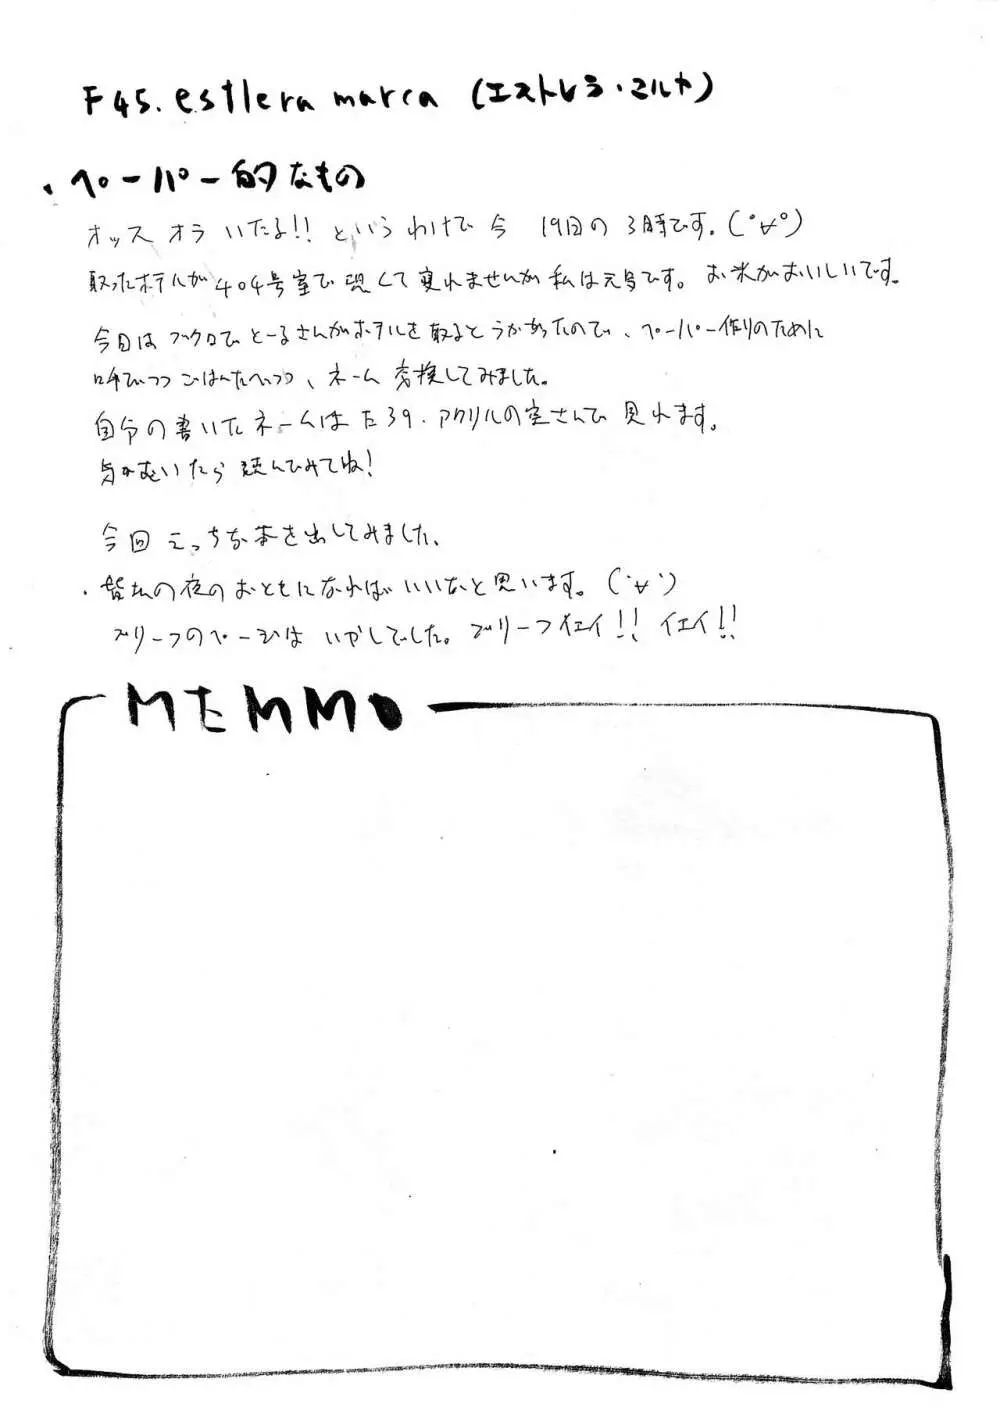 F45. estlera marca (エストレラ・マルカ)
・ペーパー的なもの
オッス オラ いたる!! というわけで 今 19日の 3時です。(°∀°)
取ったホテルが 404号室で 恐くて 寝れませんが 私は元気です。お米がおいしいです。
今日は ブクロで とーるさんがホテルを 取るとうかがったので、ペーパー作りのために
呼びつつ ごはんたべつつ、ネーム 交換してみました。
自分の書いたネームは た39・アクリルの室さんで 見れます。
気がむいたら 読んでみてね!
今回 えっちな本を出してみました。
・皆さんの夜のおともになればいいなと思います。(・∀・)
ブリーフのページは いかしてでした。ブリーフイエイ!! イエイ!!
MEMMO